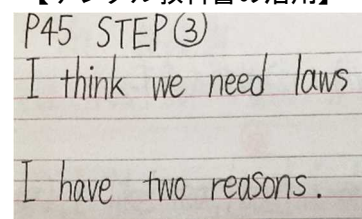 教科書の活用】
P45 STEP③
I think we need laws
I have two reasons.